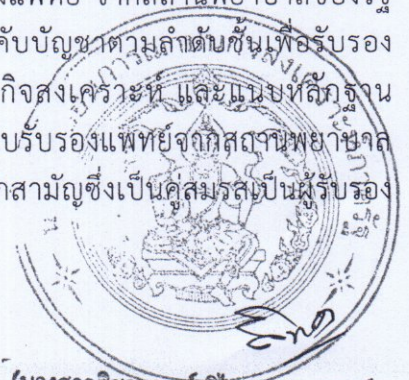 งแพทย์ จากสถานพยาบาลของรัฐ
คับบัญชาตามลำดับชั้นเพื่อรับรอง
กิจสงเคราะห์ และแนบหลักฐาน
บรับรองแพทย์จากสถานพยาบาล
กสามัญซึ่งเป็นคู่สมรสเป็นผู้รับรอง